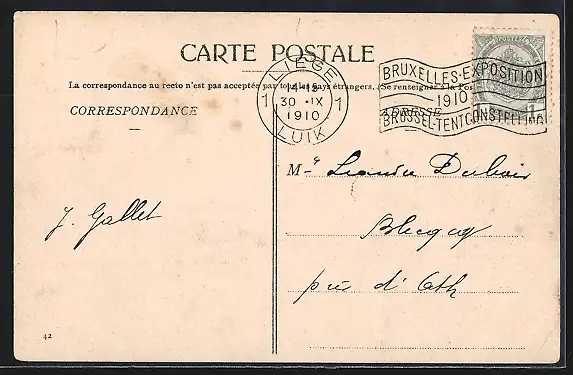 CARTE POSTALE
La correspondance au recto n'est pas acceptée par tous les pays étrangers. (Se renseigner à la Pos
CORRESPONDANCE
ADRESSE
LIÉGE
1 14-15 1
30 IX
1910
LUIK
BRUXELLES-EXPOSITION
1910
BRUSSEL-TENTOONSTELLING
POSTES
1
J. Gallet
Mr Dubois
Blicquy
près d'Ath
42